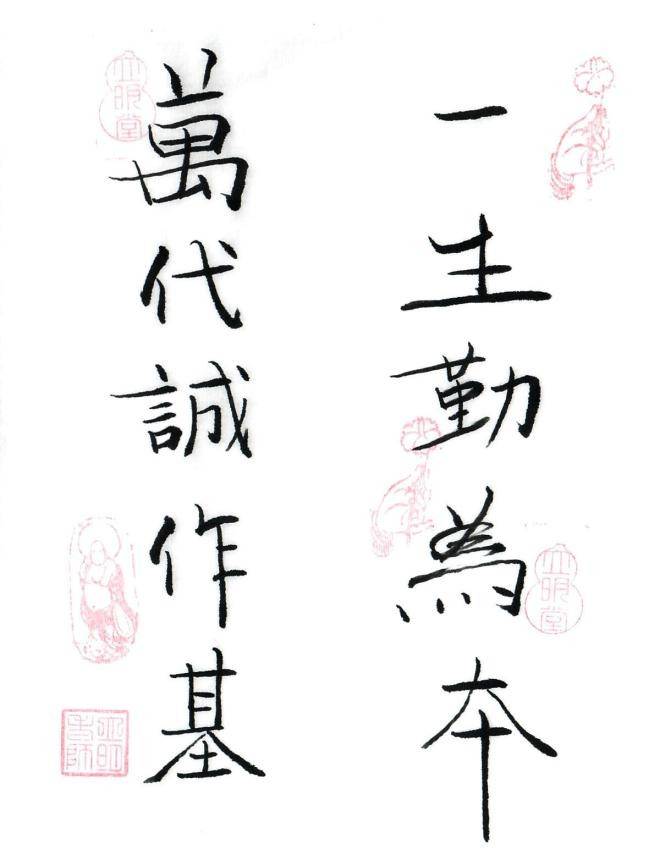 一生勤為本
萬代誠作基